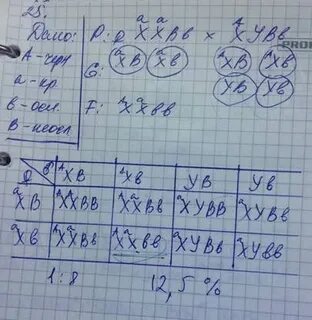 25.
Дано:
А - черн
а - кр.
в - осл.
В - неосл.
P: ♀ XᵃXᵃBв × XᴬYBв
G: XᵃB Xᵃв XᴬB Xᴬв YB Yв
F: XᴬXᵃвв
♀ ♂ XᴬB Xᴬв YB Yв
XᵃB XᴬXᵃBB XᴬXᵃBв XᵃYBB XᵃYBв
Xᵃв XᴬXᵃBв XᴬXᵃвв XᵃYBв XᵃYвв
1:8 12,5 %
PROF